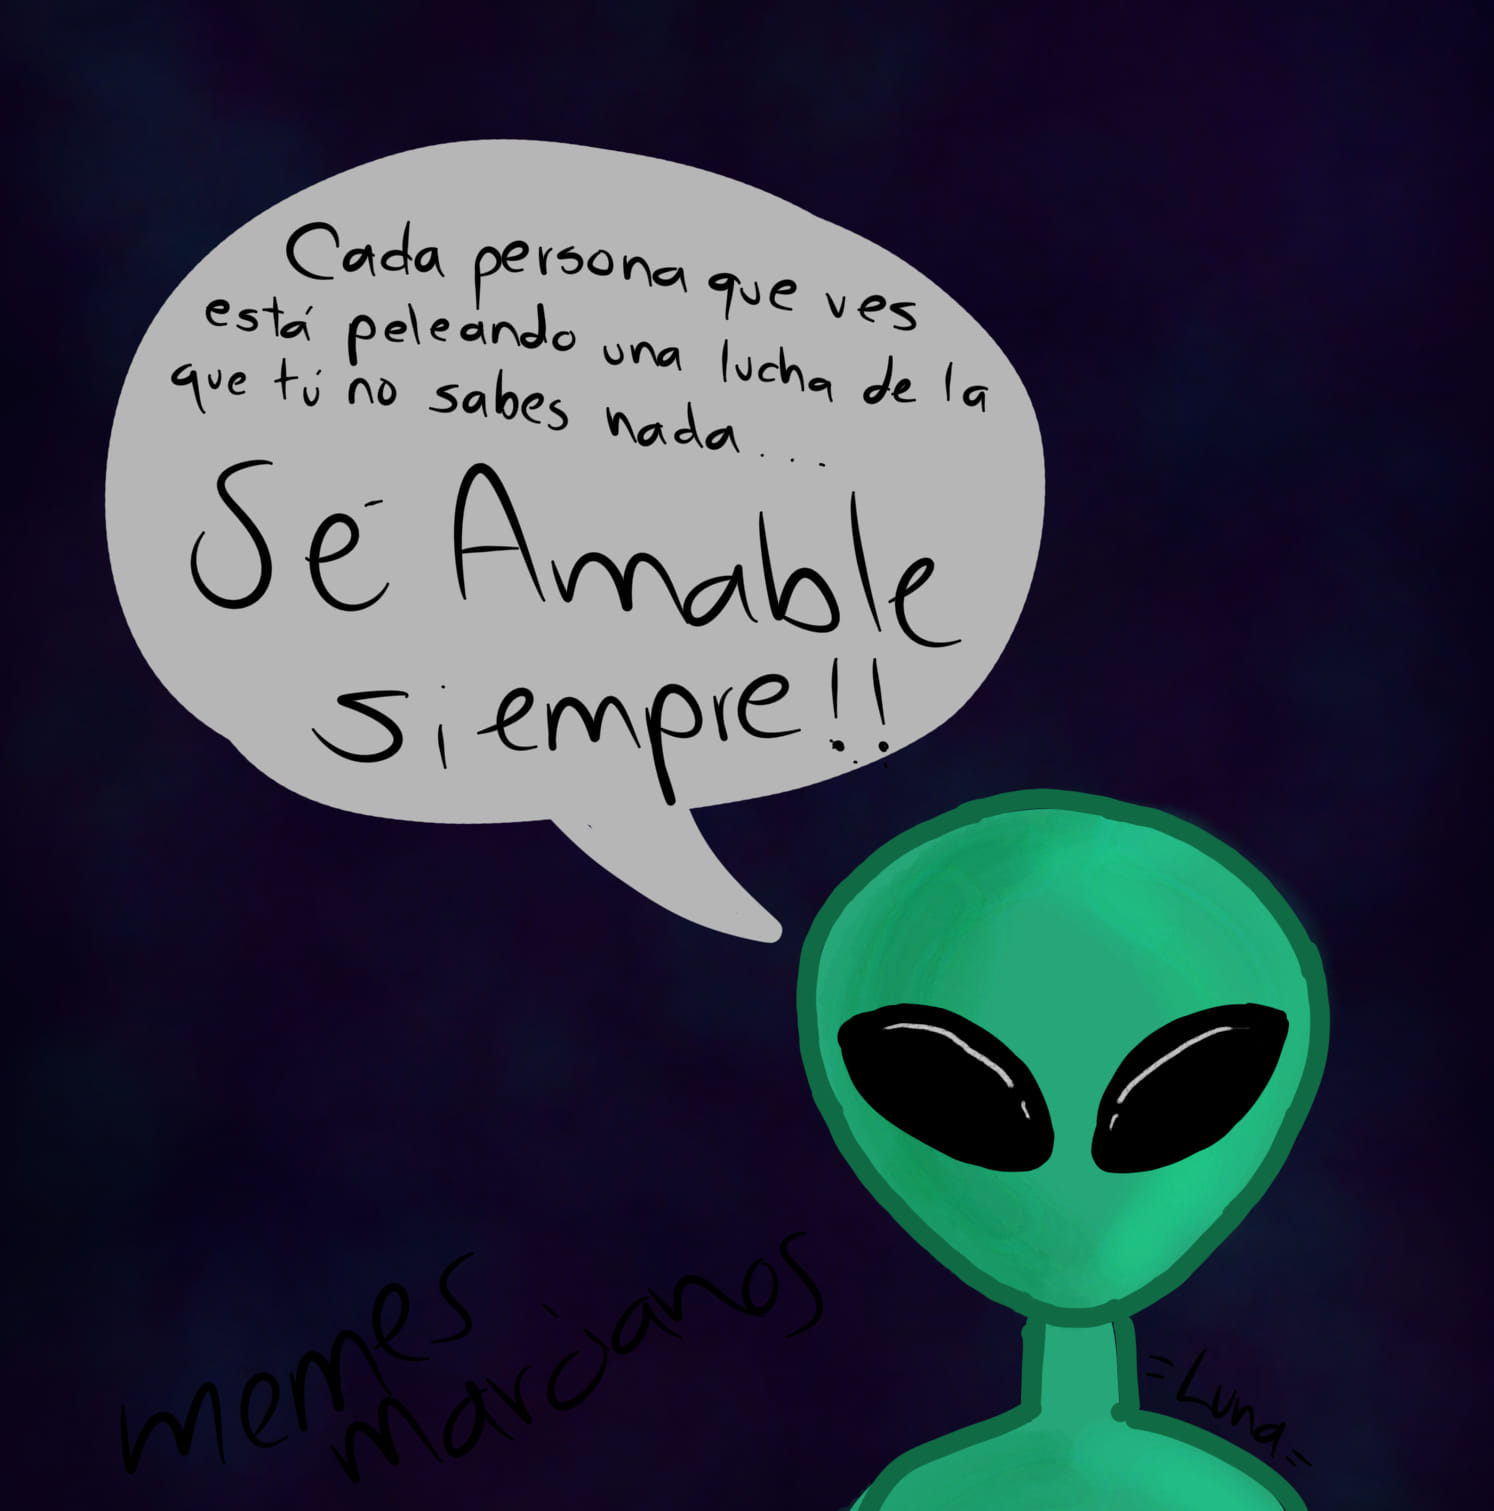 Cada persona que ves
está peleando una lucha de la
que tú no sabes nada...
Sé Amable
siempre!!
memes
marcianos
=Luna=